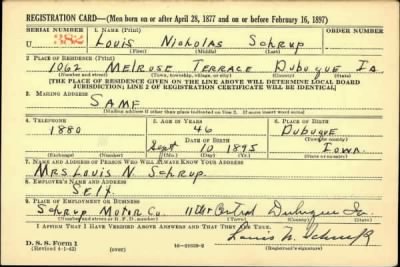 REGISTRATION CARD—(Men born on or after April 28, 1877 and on or before February 16, 1897)
SERIAL NUMBER 1. NAME (Print) ORDER NUMBER
U 382 Louis Nicholas Schrup
(First) (Middle) (Last)
2. PLACE OF RESIDENCE (Print)
1062 Melrose Terrace Dubuque Ia
(Number and street) (Town, township, village, or city) (County) (State)
[THE PLACE OF RESIDENCE GIVEN ON THE LINE ABOVE WILL DETERMINE LOCAL BOARD
JURISDICTION; LINE 2 OF REGISTRATION CERTIFICATE WILL BE IDENTICAL]
3. MAILING ADDRESS
SAME
[Mailing address if other than place indicated on line 2. If same insert word same]
4. TELEPHONE 5. AGE IN YEARS 6. PLACE OF BIRTH
1880 46 Dubuque
DATE OF BIRTH (Town or county)
Sept 10 1895 Iowa
(Exchange) (Number) (Mo.) (Day) (Yr.) (State or country)
7. NAME AND ADDRESS OF PERSON WHO WILL ALWAYS KNOW YOUR ADDRESS
Mrs Louis N Schrup
8. EMPLOYER'S NAME AND ADDRESS
Self
9. PLACE OF EMPLOYMENT OR BUSINESS
Schrup Motor Co. 11th Central Dubuque Ia.
(Number and street or R. F. D. number) (Town) (County) (State)
I AFFIRM THAT I HAVE VERIFIED ABOVE ANSWERS AND THAT THEY ARE TRUE.
D. S. S. Form 1 Louis N. Schrup
(Revised 4-1-42) (over) (Registrant's signature)